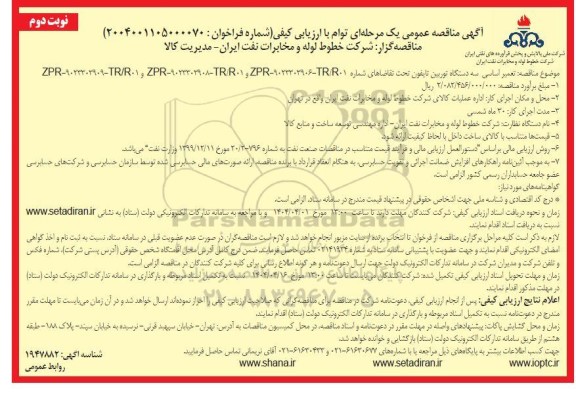 نوبت دوم
آگهی مناقصه عمومی یک مرحله‌ای توام با ارزیابی کیفی(شماره فراخوان : ۲۰۰۴۰۰۱۱۰۵۰۰۰۰۷۰)
مناقصه‌گزار: شرکت خطوط لوله و مخابرات نفت ایران- مدیریت کالا
شرکت ملی پالایش و پخش فرآورده های نفتی ایران
شرکت خطوط لوله و مخابرات نفت ایران
موضوع مناقصه: تعمیر اساسی سه دستگاه توربین تایفون تحت تقاضاهای شماره ZPR-۹۰۲۳۳-۲۹۰۶-TR/R۰۱ و ZPR-۹۰۲۳۳-۲۹۰۸-TR/R۰۱ و ZPR-۹۰۲۳۳-۲۹۰۹-TR/R۰۱
۱- مبلغ برآورد مناقصه: ۲/۰۸۲/۴۵۶/۰۰۰/۰۰۰ ریال
۲- محل و مکان اجرای کار: اداره عملیات کالای شرکت خطوط لوله و مخابرات نفت ایران واقع در تهران
۳- مدت اجرای کار: ۳۰ ماه شمسی
۴- نام دستگاه نظارت: شرکت خطوط لوله و مخابرات نفت ایران- اداره مهندسی توسعه ساخت و منابع کالا
۵- قیمت‌ها متناسب با کالای ساخت داخل با لحاظ کیفیت ارائه شود.
۶- روش ارزیابی مالی براساس "دستورالعمل ارزیابی مالی و فرآیند قیمت متناسب در مناقصات صنعت نفت به شماره ۷۹۶-۲۰/۲ مورخ ۱۳۹۹/۱۲/۱۱ وزارت نفت" می‌باشد.
۷- به موجب آئین‌نامه راهکارهای افزایش ضمانت اجرائی و تقویت حسابرسی، به هنگام انعقاد قرارداد با برنده مناقصه، ارائه صورت‌های مالی حسابرسی شده توسط سازمان حسابرسی و شرکت‌های حسابرسی
عضو جامعه حسابداران رسمی کشور الزامی است.
گواهینامه‌های مورد نیاز:
* درج کد اقتصادی و شناسه ملی جهت اشخاص حقوقی در پیشنهاد قیمت مندرج در سامانه ستاد، الزامی است.
زمان و نحوه دریافت اسناد ارزیابی کیفی: شرکت کنندگان مهلت دارند تا ساعت ۱۳:۰۰ مورخ ۱۴۰۴/۰۴/۰۱ و با مراجعه به سامانه تدارکات الکترونیکی دولت (ستاد) به نشانی www.setadiran.ir
نسبت به دریافت اسناد اقدام نمایند.
لازم به ذکر است کلیه مراحل برگزاری مناقصه از فرخوان تا انتخاب برنده از سایت مزبور انجام خواهد شد و لازم است مناقصه‌گران در صورت عدم عضویت قبلی در سامانه ستاد، نسبت به ثبت نام و اخذ گواهی
امضای الکترونیکی اقدام نمایند
و تلفن شرکت و مدیران شرکت در سامانه تدارکات الکترونیک دولت جهت ارسال دعوتنامه و هر گونه اطلاع رسانی برای کلیه شرکت کنندگان در مناقصه الزامی است.
زمان و مهلت تحویل اسناد ارزیابی کیفی تکمیل شده: شرکت کنندگان
در مهلت مذکور اقدام نمایند.
اعلام نتایج ارزیابی کیفی: پس از انجام ارزیابی کیفی، دعوتنامه شرکت در مناقصه برای مناقصه‌گرانی که صلاحیت ارزیابی کیفی را احراز نموده‌اند، ارسال خواهد شد و در آن زمان می‌بایست تا مهلت مقرر
مندرج در دعوتنامه نسبت به تکمیل اسناد مربوطه و بارگذاری در سامانه تدارکات الکترونیک دولت (ستاد) اقدام نمایند.
زمان و محل گشایش پاکات: پیشنهادهای واصله در مهلت مقرر در دعوتنامه و اسناد مناقصه، در محل کمیسیون مناقصات به آدرس: تهران- خیابان سپهبد قرنی- نرسیده به خیابان سپند- پلاک ۱۸۸- طبقه
هشتم از طریق سامانه تدارکات الکترونیک دولت (ستاد) بازگشایی و خوانده خواهد شد.
جهت کسب اطلاعات بیشتر به پایگاه‌های ذیل مراجعه یا با شماره‌های ۶۱۶۳۰۶۷۷-۰۲۱ و ۶۱۶۳۰۴۳۳-۰۲۱ آقای نریمانی تماس حاصل فرمایید.
www.ioptc.ir
www.setadiran.ir
www.shana.ir
شناسه آگهی: ۱۹۴۷۸۸۲
روابط عمومی
ParsNamadData